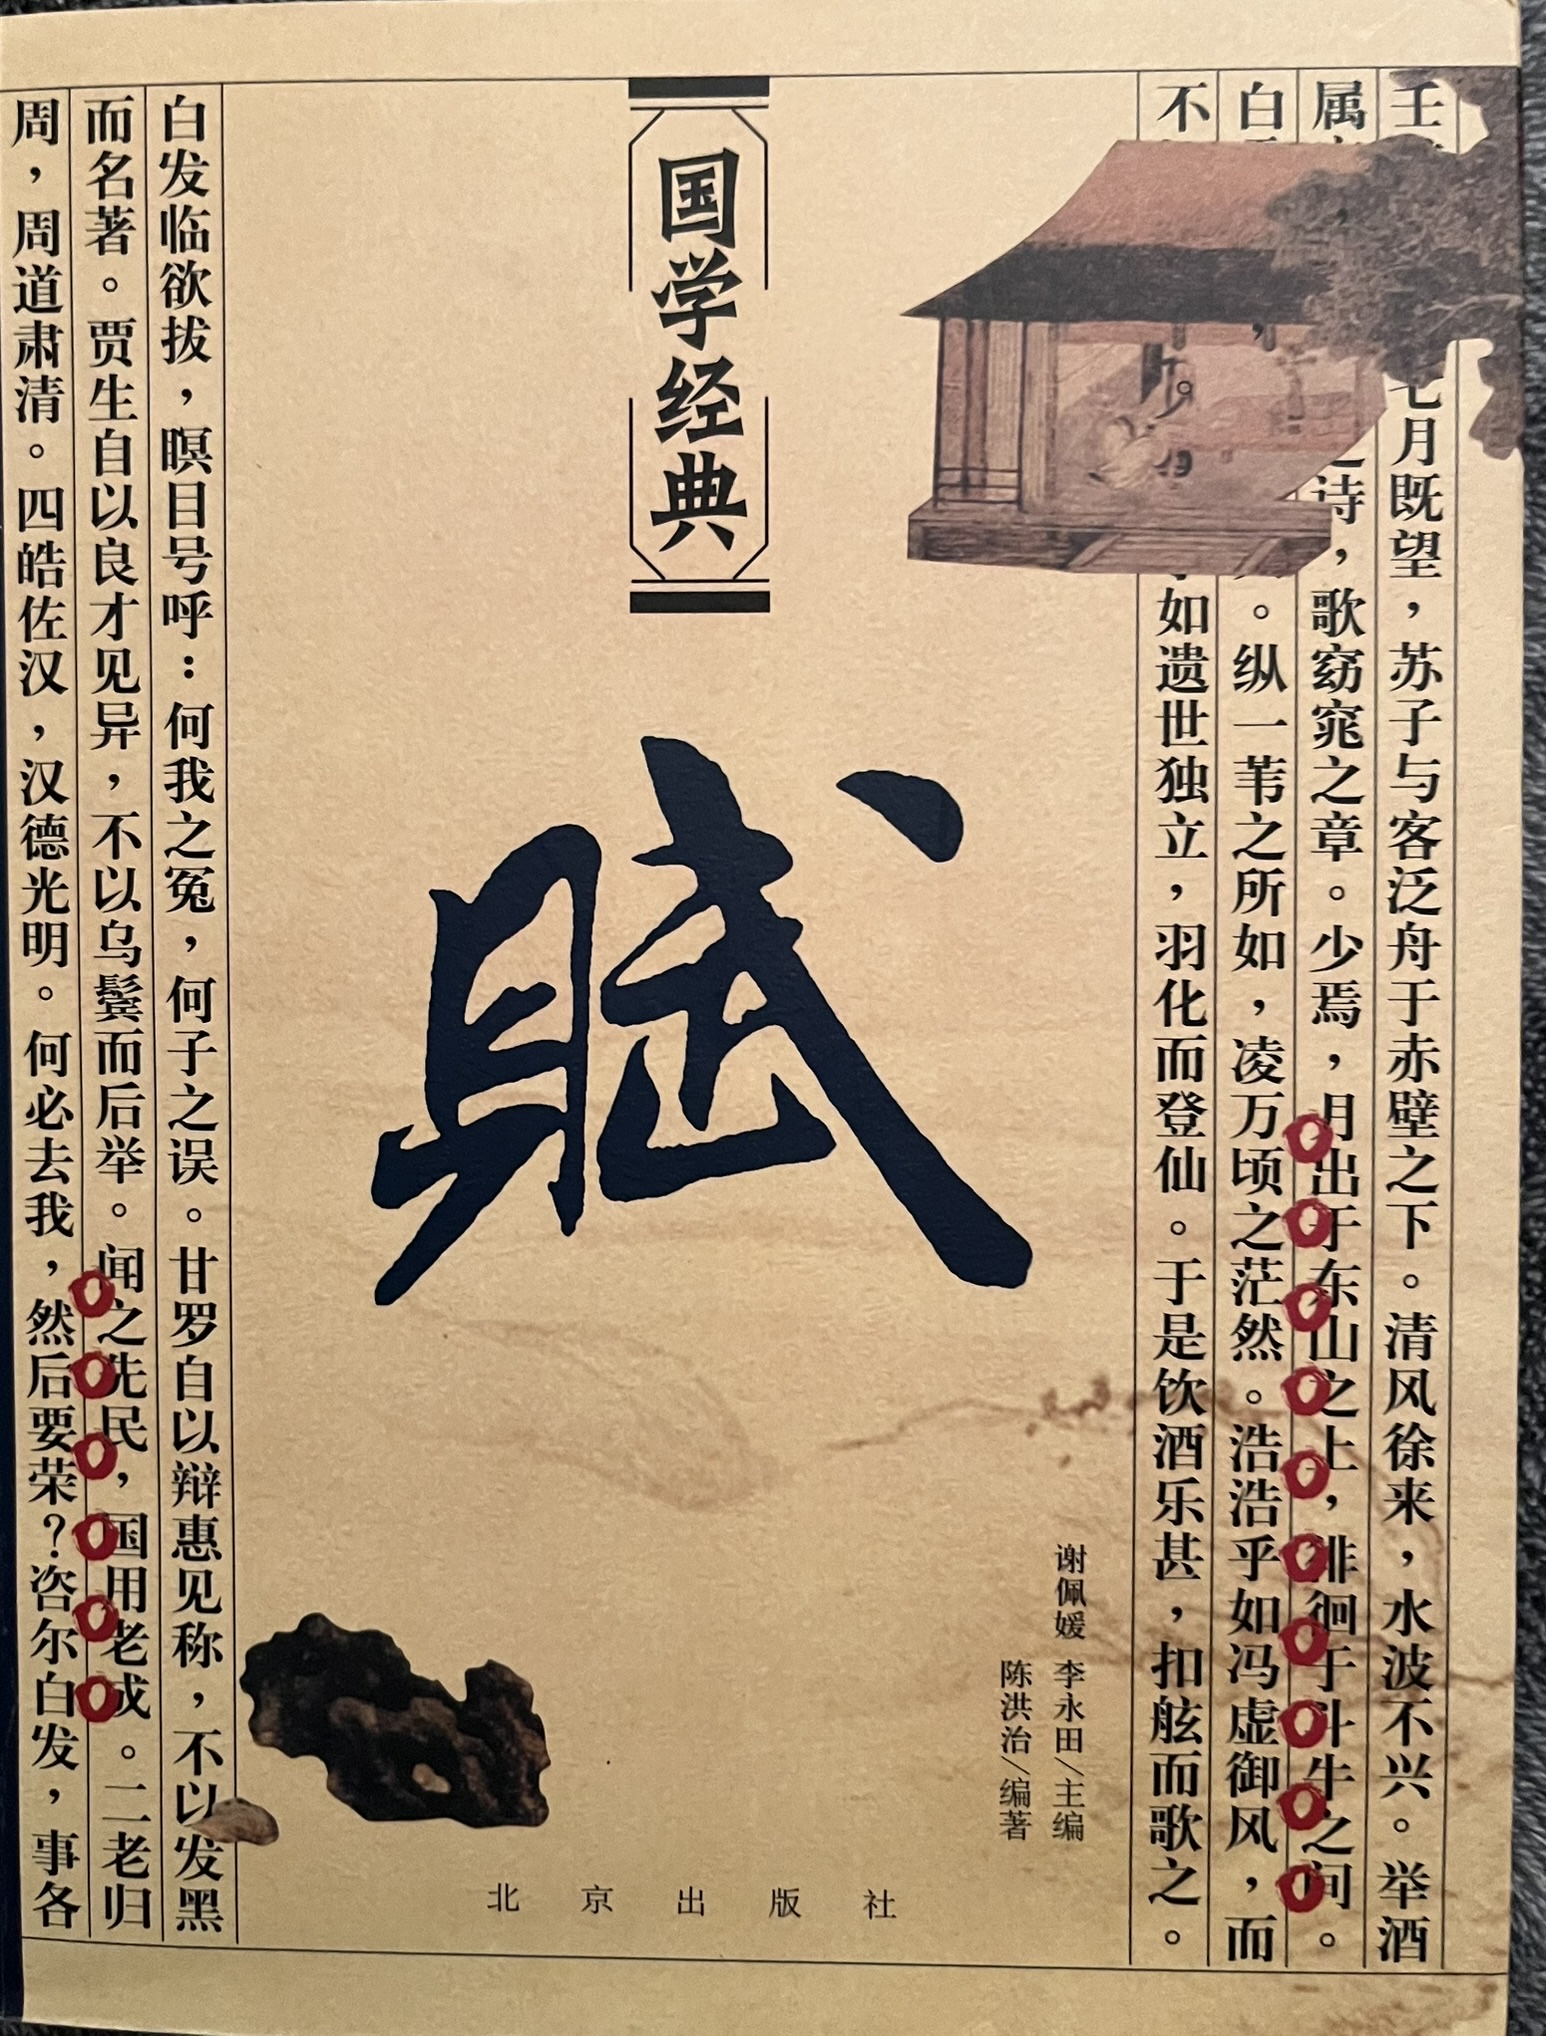 壬七月既望，苏子与客泛舟于赤壁之下。清风徐来，水波不兴。举酒
属诗，歌窈窕之章。少焉，月出于东山之上，徘徊于斗牛之间。
白。纵一苇之所如，凌万顷之茫然。浩浩乎如冯虚御风，而
不如遗世独立，羽化而登仙。于是饮酒乐甚，扣舷而歌之。
国学经典
赋
谢佩媛 李永田/主编
陈洪治/编著
北京出版社
白发临欲拔，瞑目号呼：何我之冤，何子之误。甘罗自以辩惠见称，不以发黑
而名著。贾生自以良才见异，不以乌鬓而后举。闻之先民，国用老成。二老归
周，周道肃清。四皓佐汉，汉德光明。何必去我，然后要荣？咨尔白发，事各